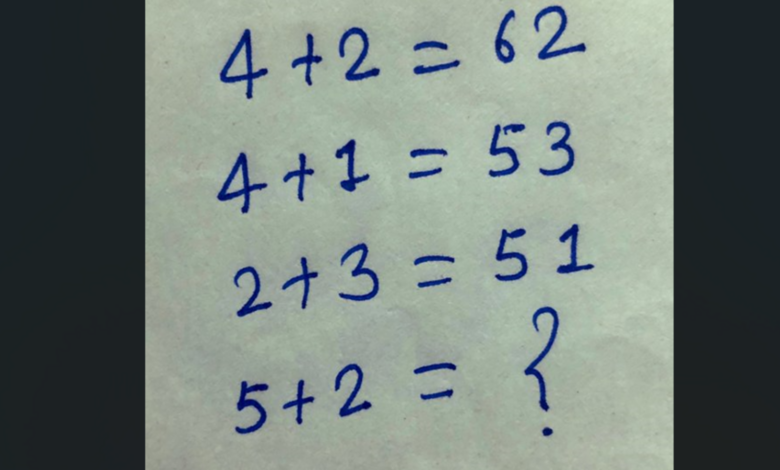 4 + 2 = 62
4 + 1 = 53
2 + 3 = 51
5 + 2 = ?